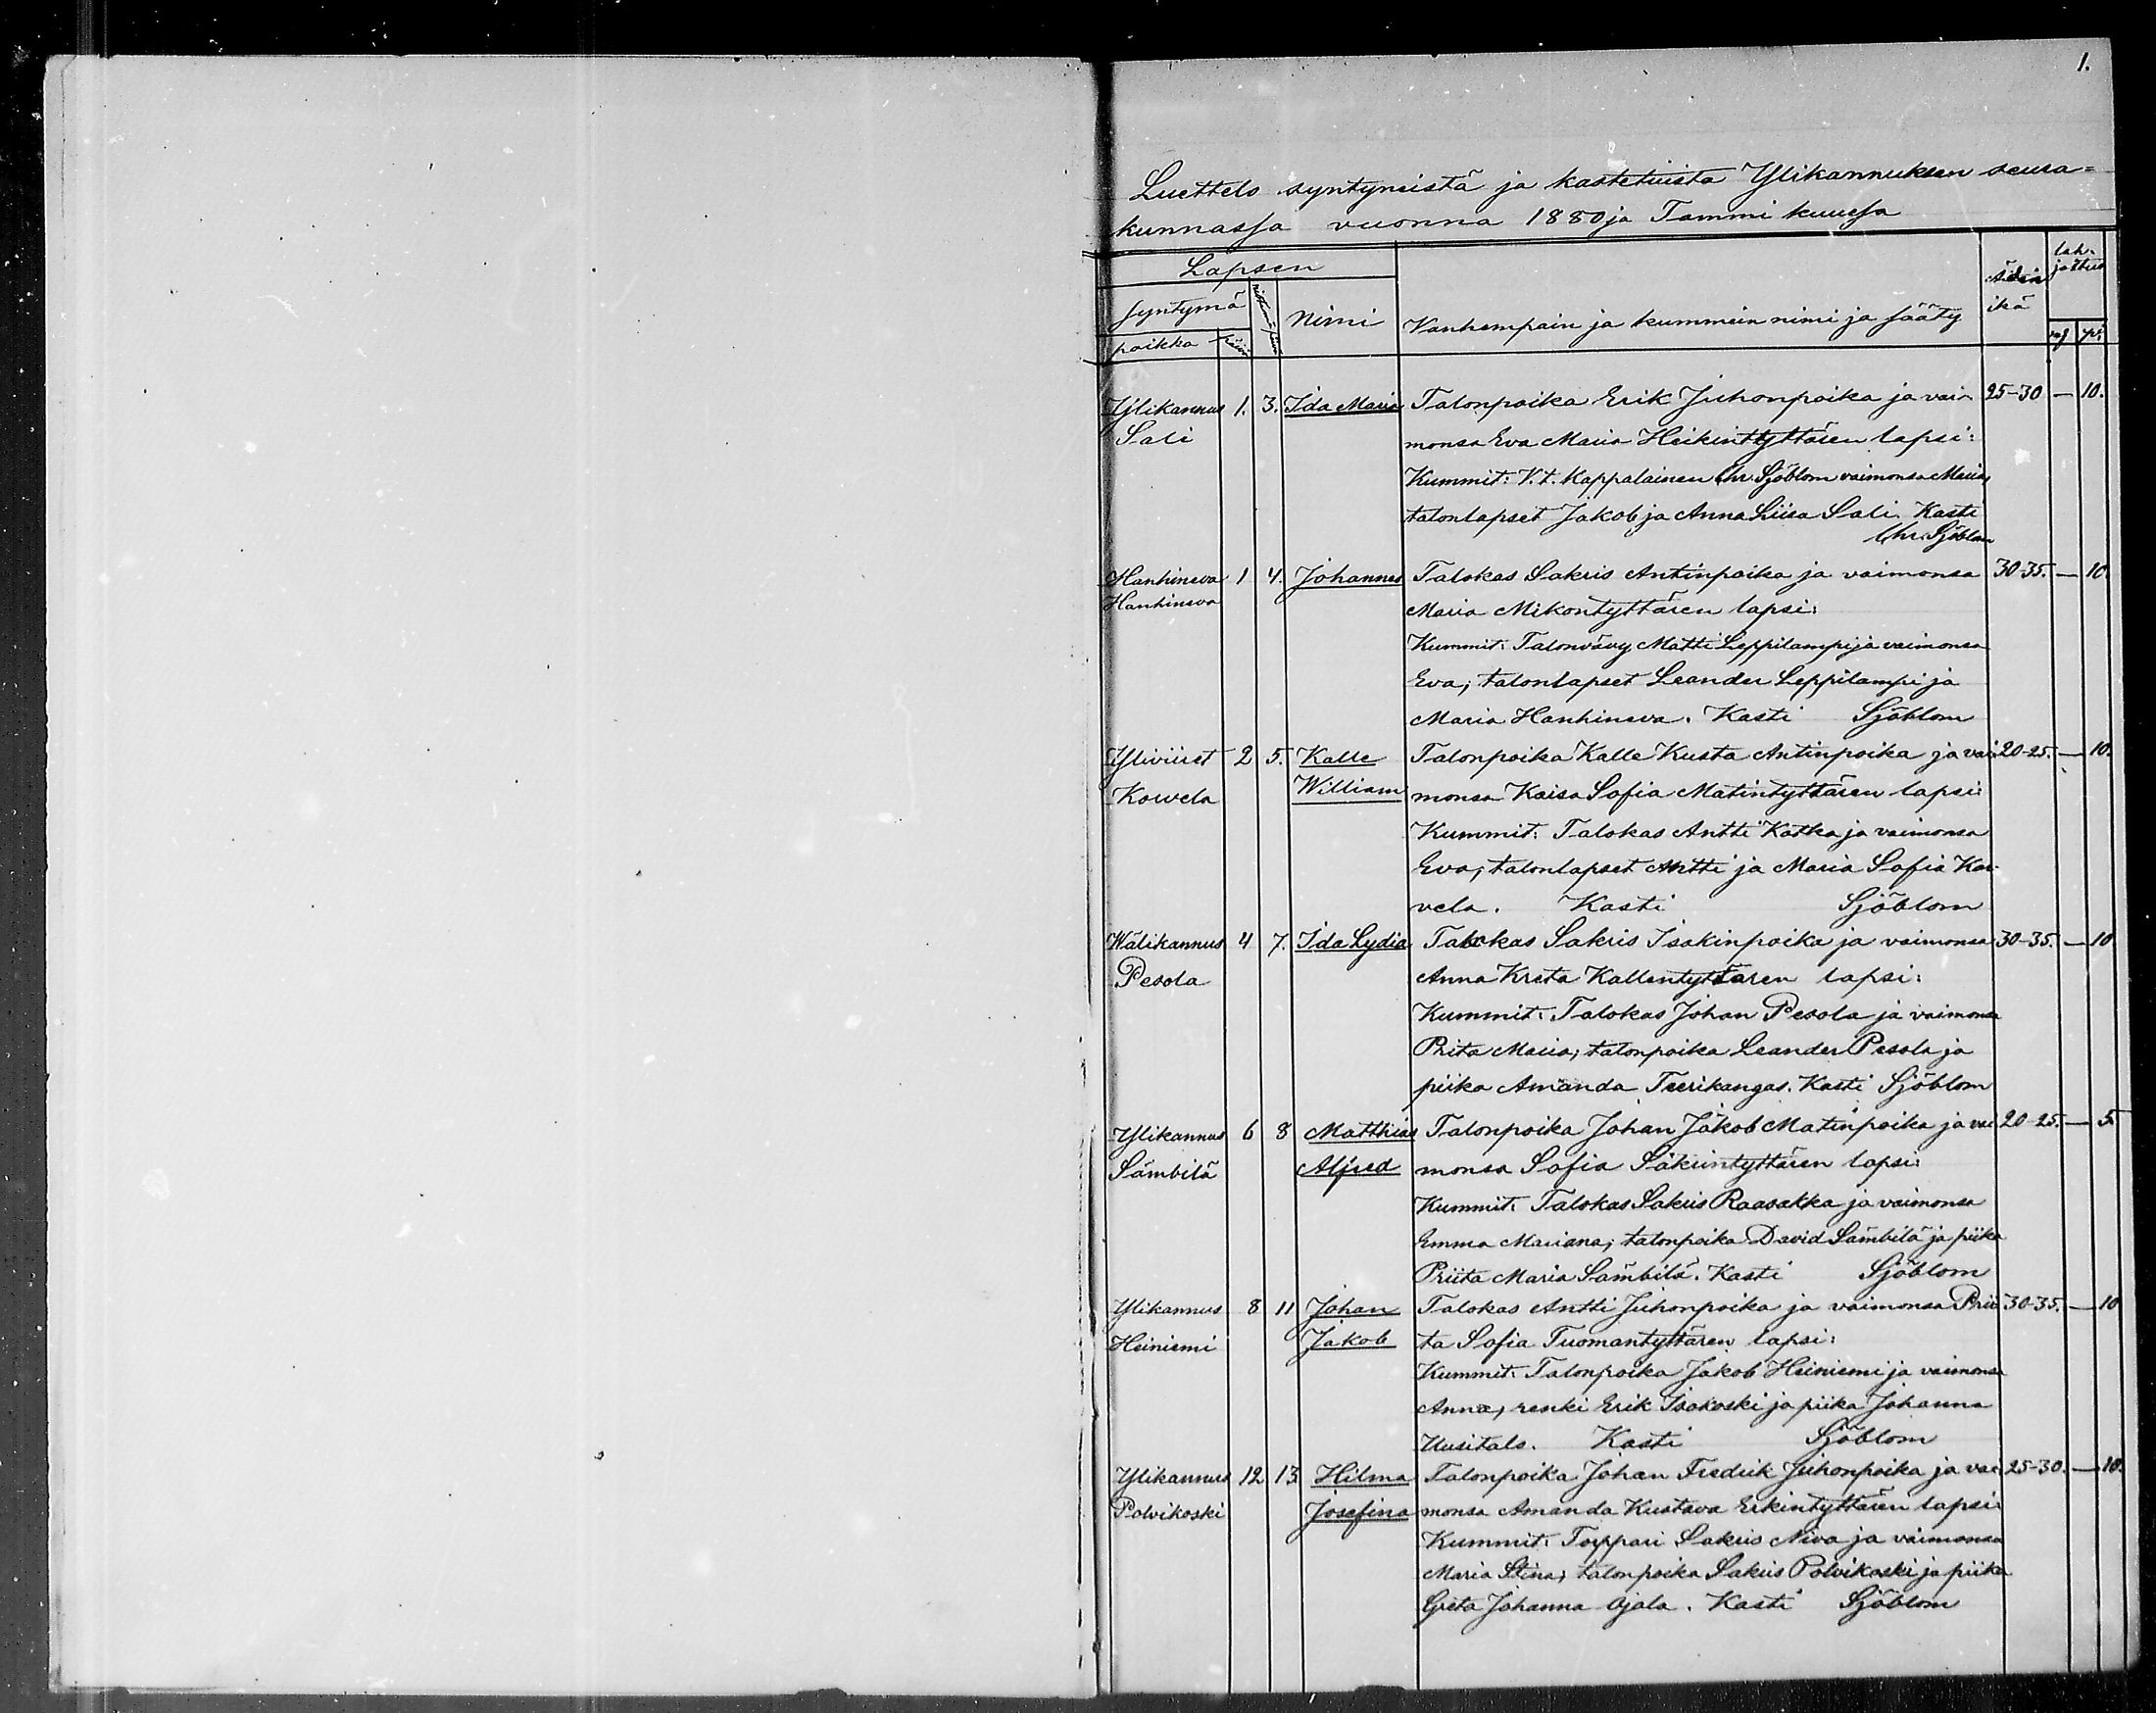 1.
Luettelo syntyneistä ja kastetuista Ylikannuksen seura=
kunnassa vuonna 1880 ja Tammi kuussa
Lapsen
syntymä
paikka
päivä
nimi
Vanhempain ja kummein nimi ja sääty
Äidin
ikä
lah-
joitus
pi
Ylikannus 1. 3. Ida Maria Talonpoika Erik Juhonpoika ja vai- 25-30 — 10.
Sali monsa Eva Maria Heikintyttären lapsi:
Kummit: V.t. Kappalainen Chr. Sjöblom vaimonsa Maria,
talonlapset Jakob ja Anna Liisa Sali. Kasti
Chr. Sjöblom
Hanhineva 1 4. Johannes Talokas Sakris Antinpoika ja vaimonsa 30-35. — 10.
Hanhineva Maria Mikontyttären lapsi:
Kummit: Talonvävy Matti Leppilampi ja vaimonsa
Eva; talonlapset Leander Leppilampi ja
Maria Hanhineva. Kasti Sjöblom
Yliviiret 2 5. Kalle Talonpoika Kalle Kusta Antinpoika ja vai 20-25. — 10.
Korvela William monsa Kaisa Sofia Matintyttären lapsi:
Kummit: Talokas Antti Katka ja vaimonsa
Eva; talonlapset Antti ja Maria Sofia Kor-
vela. Kasti Sjöblom
Wälikannus 4 7. Ida Lydia Talokas Sakris Isakinpoika ja vaimonsa 30-35. — 10
Pesola Anna Kreta Kallentyttären lapsi:
Kummit: Talokas Johan Pesola ja vaimonsa
Prita Maria; talonpoika Leander Pesola ja
piika Amanda Teerikangas. Kasti Sjöblom
Ylikannus 6 8 Matthias Talonpoika Johan Jakob Matinpoika ja vai 20-25. — 5
Sämbilä Alfred monsa Sofia Sakrintyttären lapsi:
Kummit: Talokas Sakris Raasakka ja vaimonsa
Emma Mariana; talonpoika David Sämbilä ja piika
Priita Maria Sämbilä. Kasti Sjöblom
Ylikannus 8 11 Johan Talokas Antti Juhonpoika ja vaimonsa Prii 30-35. — 10
Heiniemi Jakob ta Sofia Tuomantyttären lapsi:
Kummit: Talonpoika Jakob Heiniemi ja vaimonsa
Anna, renki Erik Isokoski ja piika Johanna
Uusitalo. Kasti Sjöblom
Ylikannus 12 13 Hilma Talonpoika Johan Fredrik Juhonpoika ja vai 25-30. — 10.
Polvikoski Josefina monsa Amanda Kustava Erkintyttären lapsi:
Kummit: Torppari Sakris Niva ja vaimonsa
Maria Stina; talonpoika Sakris Polvikoski ja piika
Greta Johanna Ojala. Kasti Sjöblom